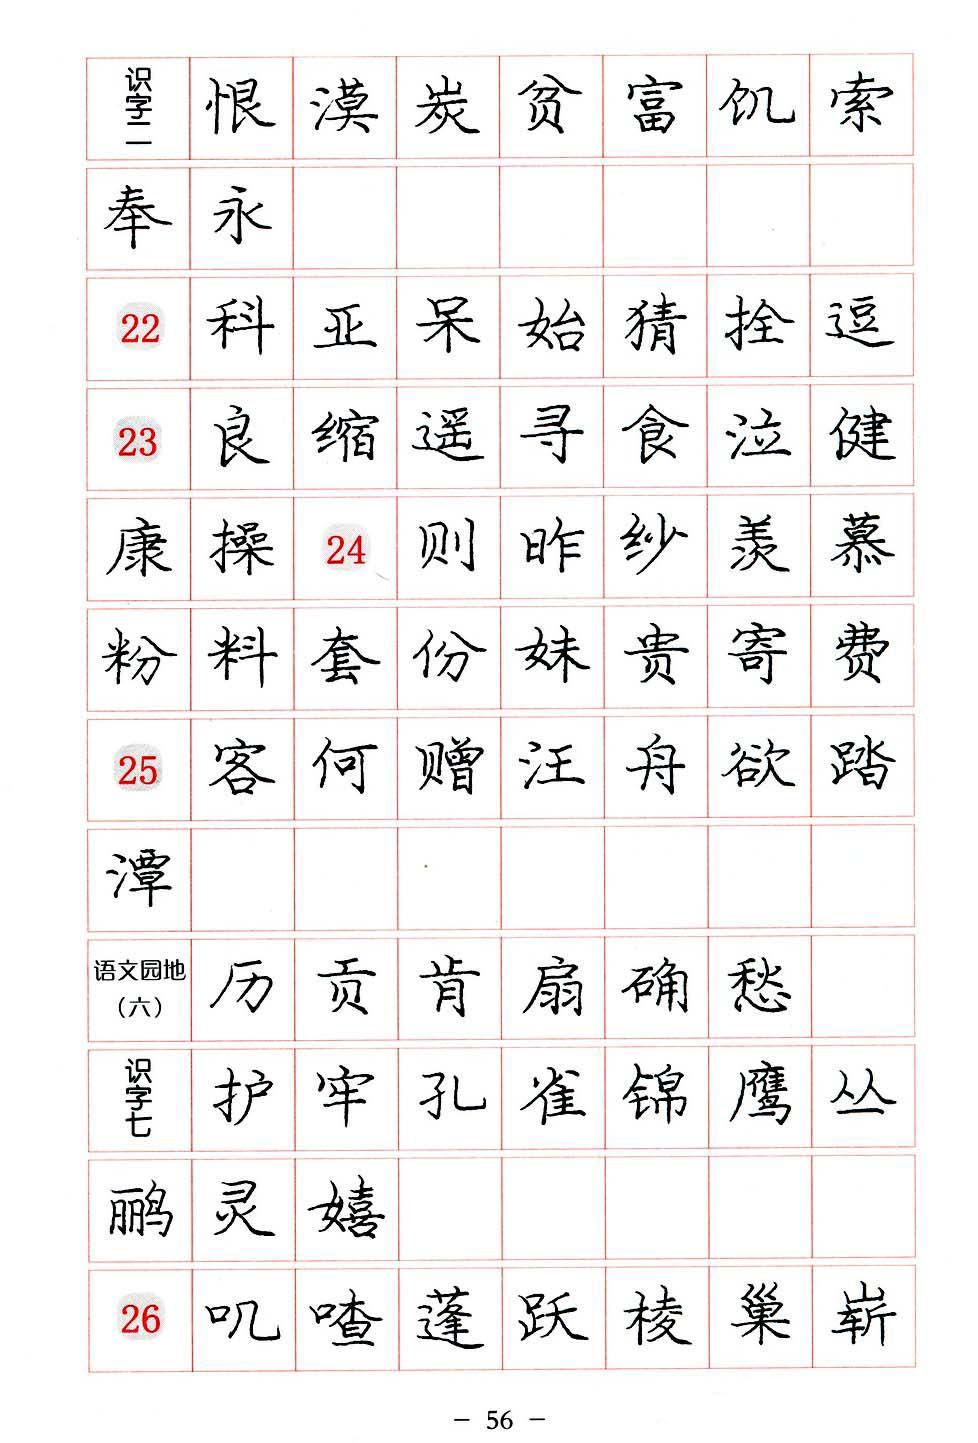 识字二 恨 漠 炭 贫 富 饥 索
奉 永
22 科 亚 呆 始 猜 拴 逗
23 良 缩 遥 寻 食 泣 健
康 操 24 则 昨 纱 羡 慕
粉 料 套 份 妹 贵 寄 费
25 客 何 赠 汪 舟 欲 踏
潭
语文园地（六） 历 贡 肯 扇 确 愁
识字七 护 牢 孔 雀 锦 鹰 丛
鹂 灵 嬉
26 叽 喳 蓬 跃 棱 巢 崭
- 56 -